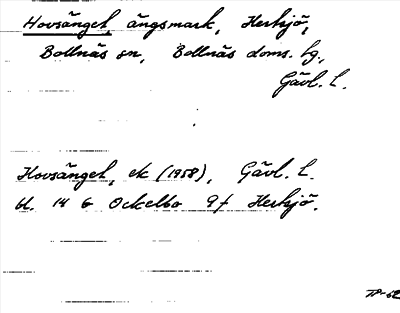 Hovsänget, ängsmark, Herksjö,
Bollnäs sn, Bollnäs doms. hg.,
Gävl. l.
Hovsänget, ek (1958), Gävl. l.
bl. 14 G Ockelbo 9f Herksjö.
TP-62